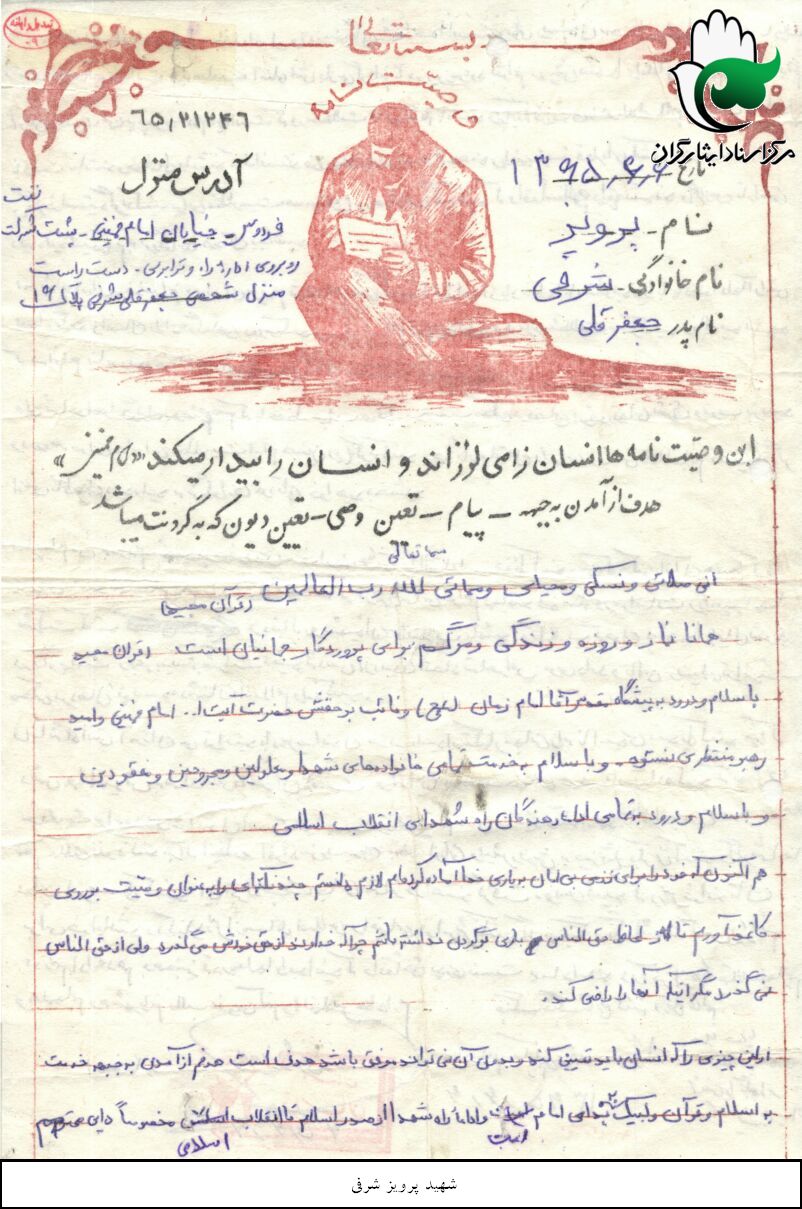 بسمه تعالی
وصیت نامه
۶۵,۲۱۲۴۶
آدرس منزل
فردوس - خیابان امام خمینی - پشت شرکت نفت
روبروی اداره راه و ترابری - دست راست
منزل شخصی جعفرقلی شرفی پلاک ۱۹
مرکز اسناد ایثارگران
تاریخ ۱۳۶۵,۶,۶
نام - پرویز
نام خانوادگی - شرفی
نام پدر جعفر قلی
این وصیت نامه ها انسان را می لرزاند و انسان را بیدار میکند «امام خمینی»
هدف از آمدن به جبهه - پیام - تعین وصی - تعیین دیون که به گردنت میباشد
بسمه تعالی
انی صلاتی و نسکی و محیای و مماتی لله رب العالمین (قرآن مجید)
همانا نماز و روزه و زندگی و مرگم برای پروردگار جهانیان است (قرآن مجید
با سلام و درود به پیشگاه مقدس آقا امام زمان (عج) و نائب بر حقش حضرت آیت ا.. امام خمینی و امید
رهبر منتظری نستوه - و با سلام به خدمت تمامی خانواده های شهدا و معلولین و مجروحین و مفقودین
و با سلام و درود به تمامی ادامه دهندگان راه شهدای انقلاب اسلامی
هم اکنون که خود را برای رزمی بی امان به یاری خدا آماده کرده ام لازم دانستم چند نکته ای را به عنوان وصیت بر روی
کاغذ آورم تا از لحاظ حق الناس باری بر گردن نداشته باشم چرا که خداوند از حق خودش می گذرد ولی از حق الناس
نمی گذرد مگر اینکه آنها را راضی کند.
اولین چیزی را که انسان باید تعیین کند و بدون آن نمی تواند موفق باشد هدف است هدفم از آمدن به جبهه خدمت
به اسلام و قرآن و لبیک به ندای امام امت و ادامه راه شهدا از صدر اسلام تا انقلاب اسلامی مخصوصاً دایی محترمم
شهید پرویز شرفی